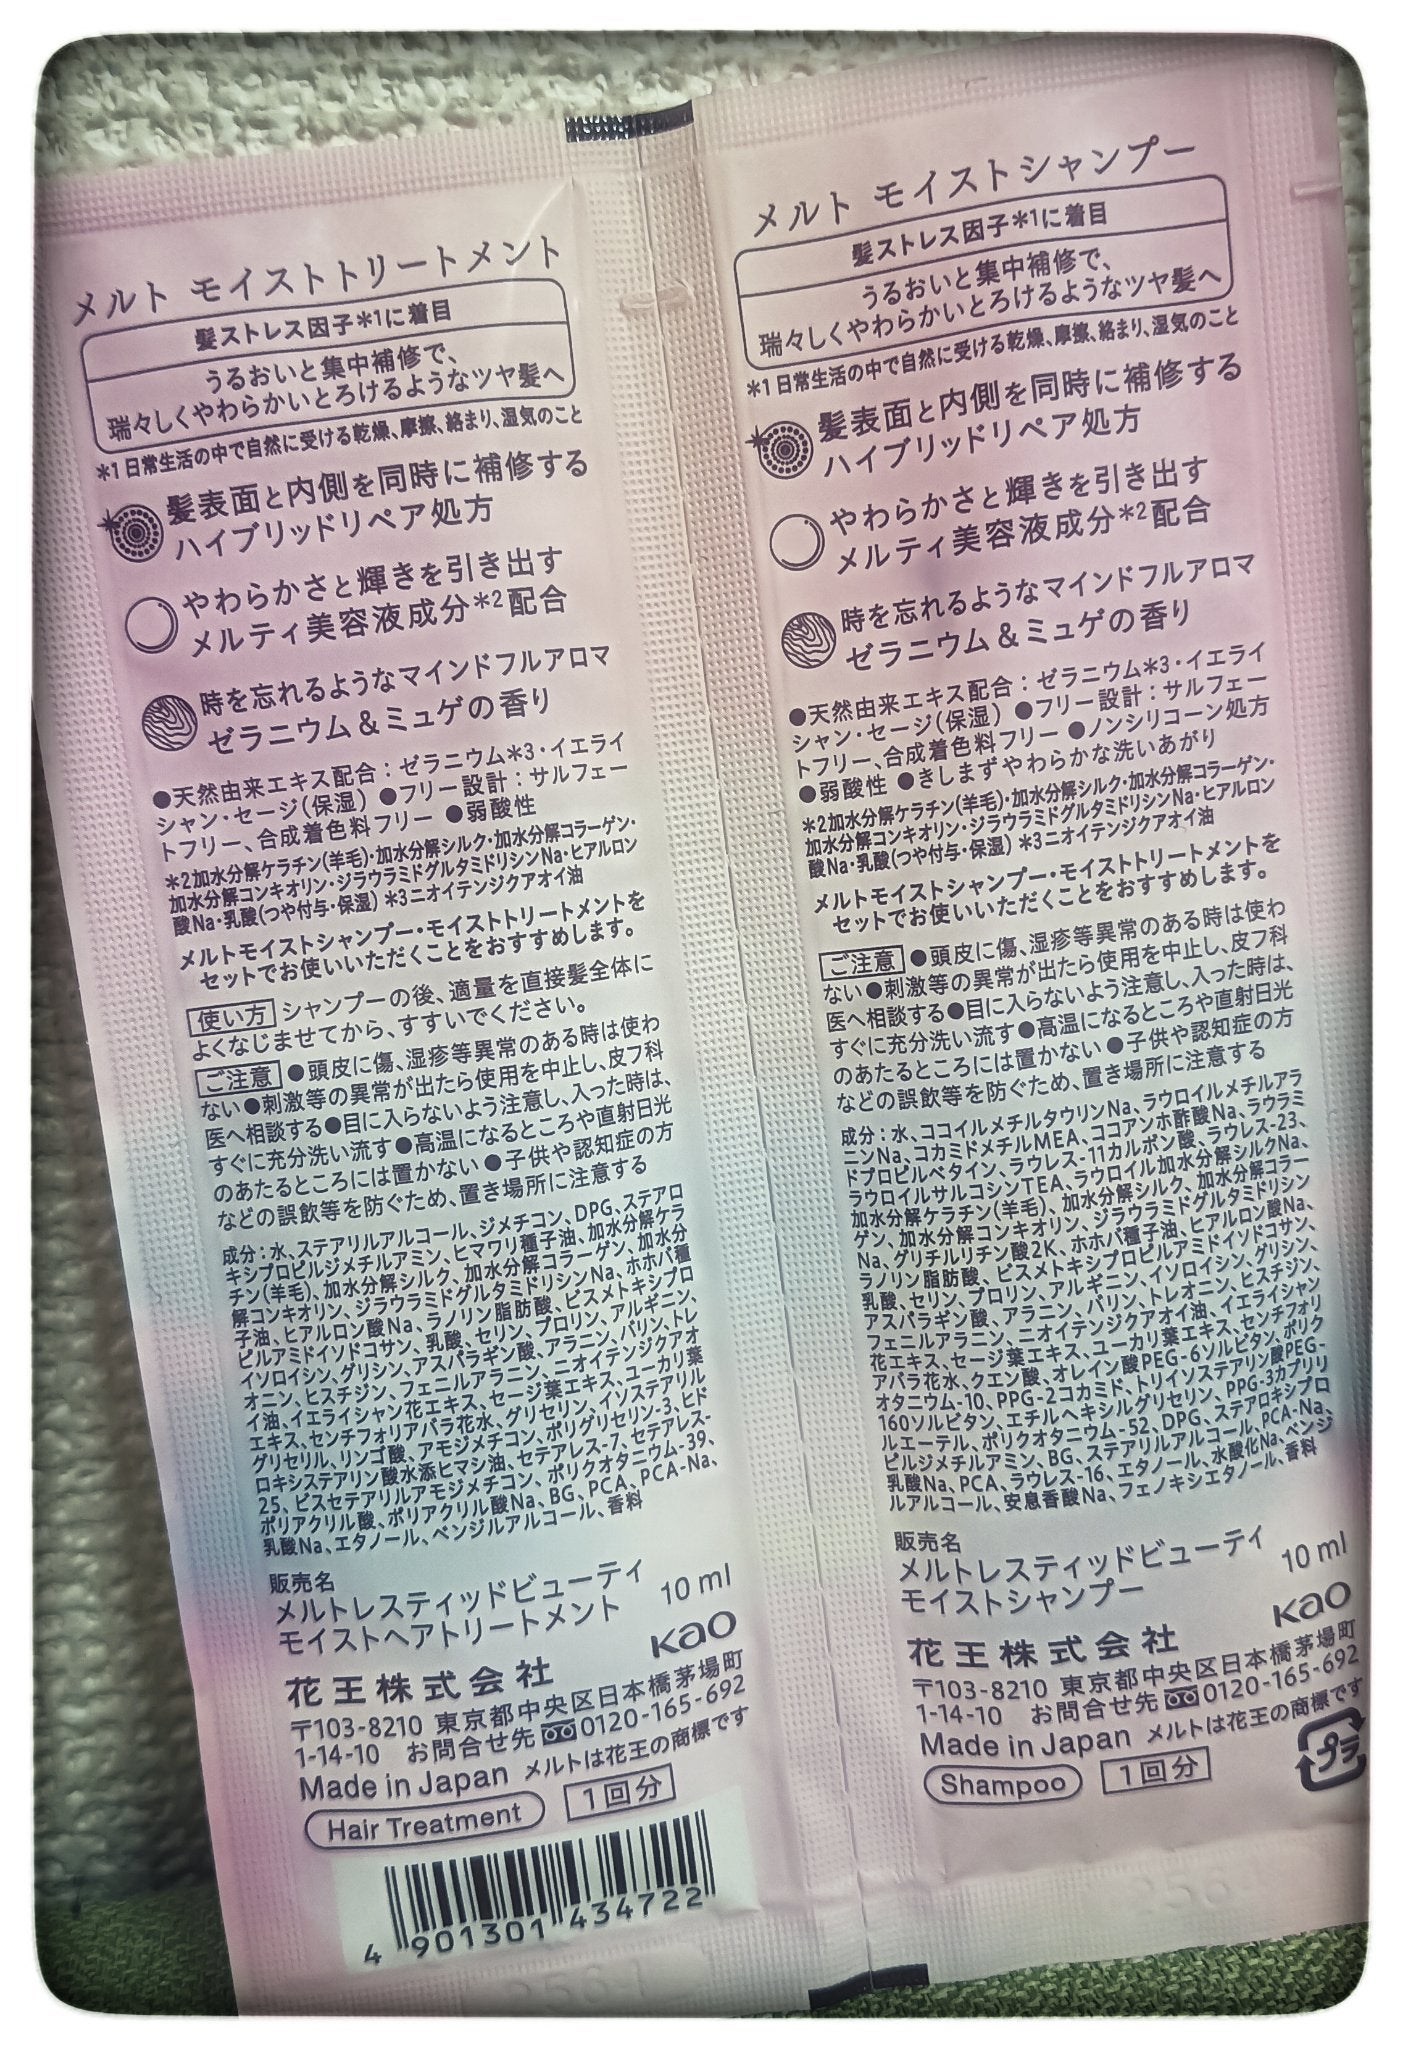 メルト モイストトリートメント
髪ストレス因子*1に着目
うるおいと集中補修で、
瑞々しくやわらかいとろけるようなツヤ髪へ
*1 日常生活の中で自然に受ける乾燥、摩擦、絡まり、湿気のこと
髪表面と内側を同時に補修する
ハイブリッドリペア処方
やわらかさと輝きを引き出す
メルティ美容液成分*2配合
時を忘れるようなマインドフルアロマ
ゼラニウム&ミュゲの香り
●天然由来エキス配合:ゼラニウム*3・イエライ
シャン・セージ(保湿) ●フリー設計:サルフェー
トフリー、合成着色料フリー ●弱酸性
*2加水分解ケラチン(羊毛)・加水分解シルク・加水分解コラーゲン・
加水分解コンキオリン・ジラウラミドグルタミドリシンNa・ヒアルロン
酸Na・乳酸(つや付与・保湿) *3ニオイテンジクアオイ油
メルトモイストシャンプー・モイストトリートメントを
セットでお使いいただくことをおすすめします。
使い方 シャンプーの後、適量を直接髪全体に
よくなじませてから、すすいでください。
ご注意 ●頭皮に傷、湿疹等異常のある時は使わ
ない●刺激等の異常が出たら使用を中止し、皮フ科
医へ相談する●目に入らないよう注意し、入った時は、
すぐに充分洗い流す●高温になるところや直射日光
のあたるところには置かない●子供や認知症の方
などの誤飲等を防ぐため、置き場所に注意する
成分:水、ステアリルアルコール、ジメチコン、DPG、ステアロ
キシプロピルジメチルアミン、ヒマワリ種子油、加水分解ケラ
チン(羊毛)、加水分解シルク、加水分解コラーゲン、加水分
解コンキオリン、ジラウラミドグルタミドリシンNa、ホホバ種
子油、ヒアルロン酸Na、ラノリン脂肪酸、ビスメトキシプロ
ピルアミドイソドコサン、乳酸、セリン、プロリン、アルギニン、
イソロイシン、グリシン、アスパラギン酸、アラニン、バリン、トレ
オニン、ヒスチジン、フェニルアラニン、ニオイテンジクアオ
イ油、イエライシャン花エキス、セージ葉エキス、ユーカリ葉
エキス、センチフォリアバラ花水、グリセリン、イソステアリル
グリセリル、リンゴ酸、アモジメチコン、ポリグリセリン-3、ヒド
ロキシステアリン酸水添ヒマシ油、セテアレス-7、セテアレス-
25、ビスセテアリルアモジメチコン、ポリクオタニウム-39、
ポリアクリル酸、ポリアクリル酸Na、BG、PCA、PCA-Na、
乳酸Na、エタノール、ベンジルアルコール、香料
販売名
メルトレスティッドビューティ
モイストヘアトリートメント 10ml
花王株式会社 Kao
〒103-8210 東京都中央区日本橋茅場町
1-14-10 お問合せ先 0120-165-692
Made in Japan メルトは花王の商標です
Hair Treatment 1回分
4 901301 434722
メルト モイストシャンプー
髪ストレス因子*1に着目
うるおいと集中補修で、
瑞々しくやわらかいとろけるようなツヤ髪へ
*1 日常生活の中で自然に受ける乾燥、摩擦、絡まり、湿気のこと
髪表面と内側を同時に補修する
ハイブリッドリペア処方
やわらかさと輝きを引き出す
メルティ美容液成分*2配合
時を忘れるようなマインドフルアロマ
ゼラニウム&ミュゲの香り
●天然由来エキス配合:ゼラニウム*3・イエライ
シャン・セージ(保湿) ●フリー設計:サルフェー
トフリー、合成着色料フリー ●ノンシリコーン処方
●弱酸性 ●きしまずやわらかな洗いあがり
*2加水分解ケラチン(羊毛)・加水分解シルク・加水分解コラーゲン・
加水分解コンキオリン・ジラウラミドグルタミドリシンNa・ヒアルロン
酸Na・乳酸(つや付与・保湿) *3ニオイテンジクアオイ油
メルトモイストシャンプー・モイストトリートメントを
セットでお使いいただくことをおすすめします。
ご注意 ●頭皮に傷、湿疹等異常のある時は使わ
ない●刺激等の異常が出たら使用を中止し、皮フ科
医へ相談する●目に入らないよう注意し、入った時は、
すぐに充分洗い流す●高温になるところや直射日光
のあたるところには置かない●子供や認知症の方
などの誤飲等を防ぐため、置き場所に注意する
成分:水、ココイルメチルタウリンNa、ラウロイルメチルアラ
ニンNa、コカミドメチルMEA、ココアンホ酢酸Na、ラウラミ
ドプロピルベタイン、ラウレス-11カルボン酸、ラウレス-23、
ラウロイルサルコシンTEA、ラウロイル加水分解シルクNa、
加水分解ケラチン(羊毛)、加水分解シルク、加水分解コラー
ゲン、加水分解コンキオリン、ジラウラミドグルタミドリシン
Na、グリチルリチン酸2K、ホホバ種子油、ヒアルロン酸Na、
ラノリン脂肪酸、ビスメトキシプロピルアミドイソドコサン、
乳酸、セリン、プロリン、アルギニン、イソロイシン、グリシン、
アスパラギン酸、アラニン、バリン、トレオニン、ヒスチジン、
フェニルアラニン、ニオイテンジクアオイ油、イエライシャン
花エキス、セージ葉エキス、ユーカリ葉エキス、センチフォリ
アバラ花水、クエン酸、オレイン酸PEG-6ソルビタン、ポリク
オタニウム-10、PPG-2コカミド、トリイソステアリン酸PEG-
160ソルビタン、エチルヘキシルグリセリン、PPG-3カプリリ
ルエーテル、ポリクオタニウム-52、DPG、ステアロキシプロ
ピルジメチルアミン、BG、ステアリルアルコール、PCA-Na、
乳酸Na、PCA、ラウレス-16、エタノール、水酸化Na、ベンジ
ルアルコール、安息香酸Na、フェノキシエタノール、香料
販売名
メルトレスティッドビューティ
モイストシャンプー 10ml
花王株式会社 Kao
〒103-8210 東京都中央区日本橋茅場町
1-14-10 お問合せ先 0120-165-692
Made in Japan メルトは花王の商標です
Shampoo 1回分 プラ